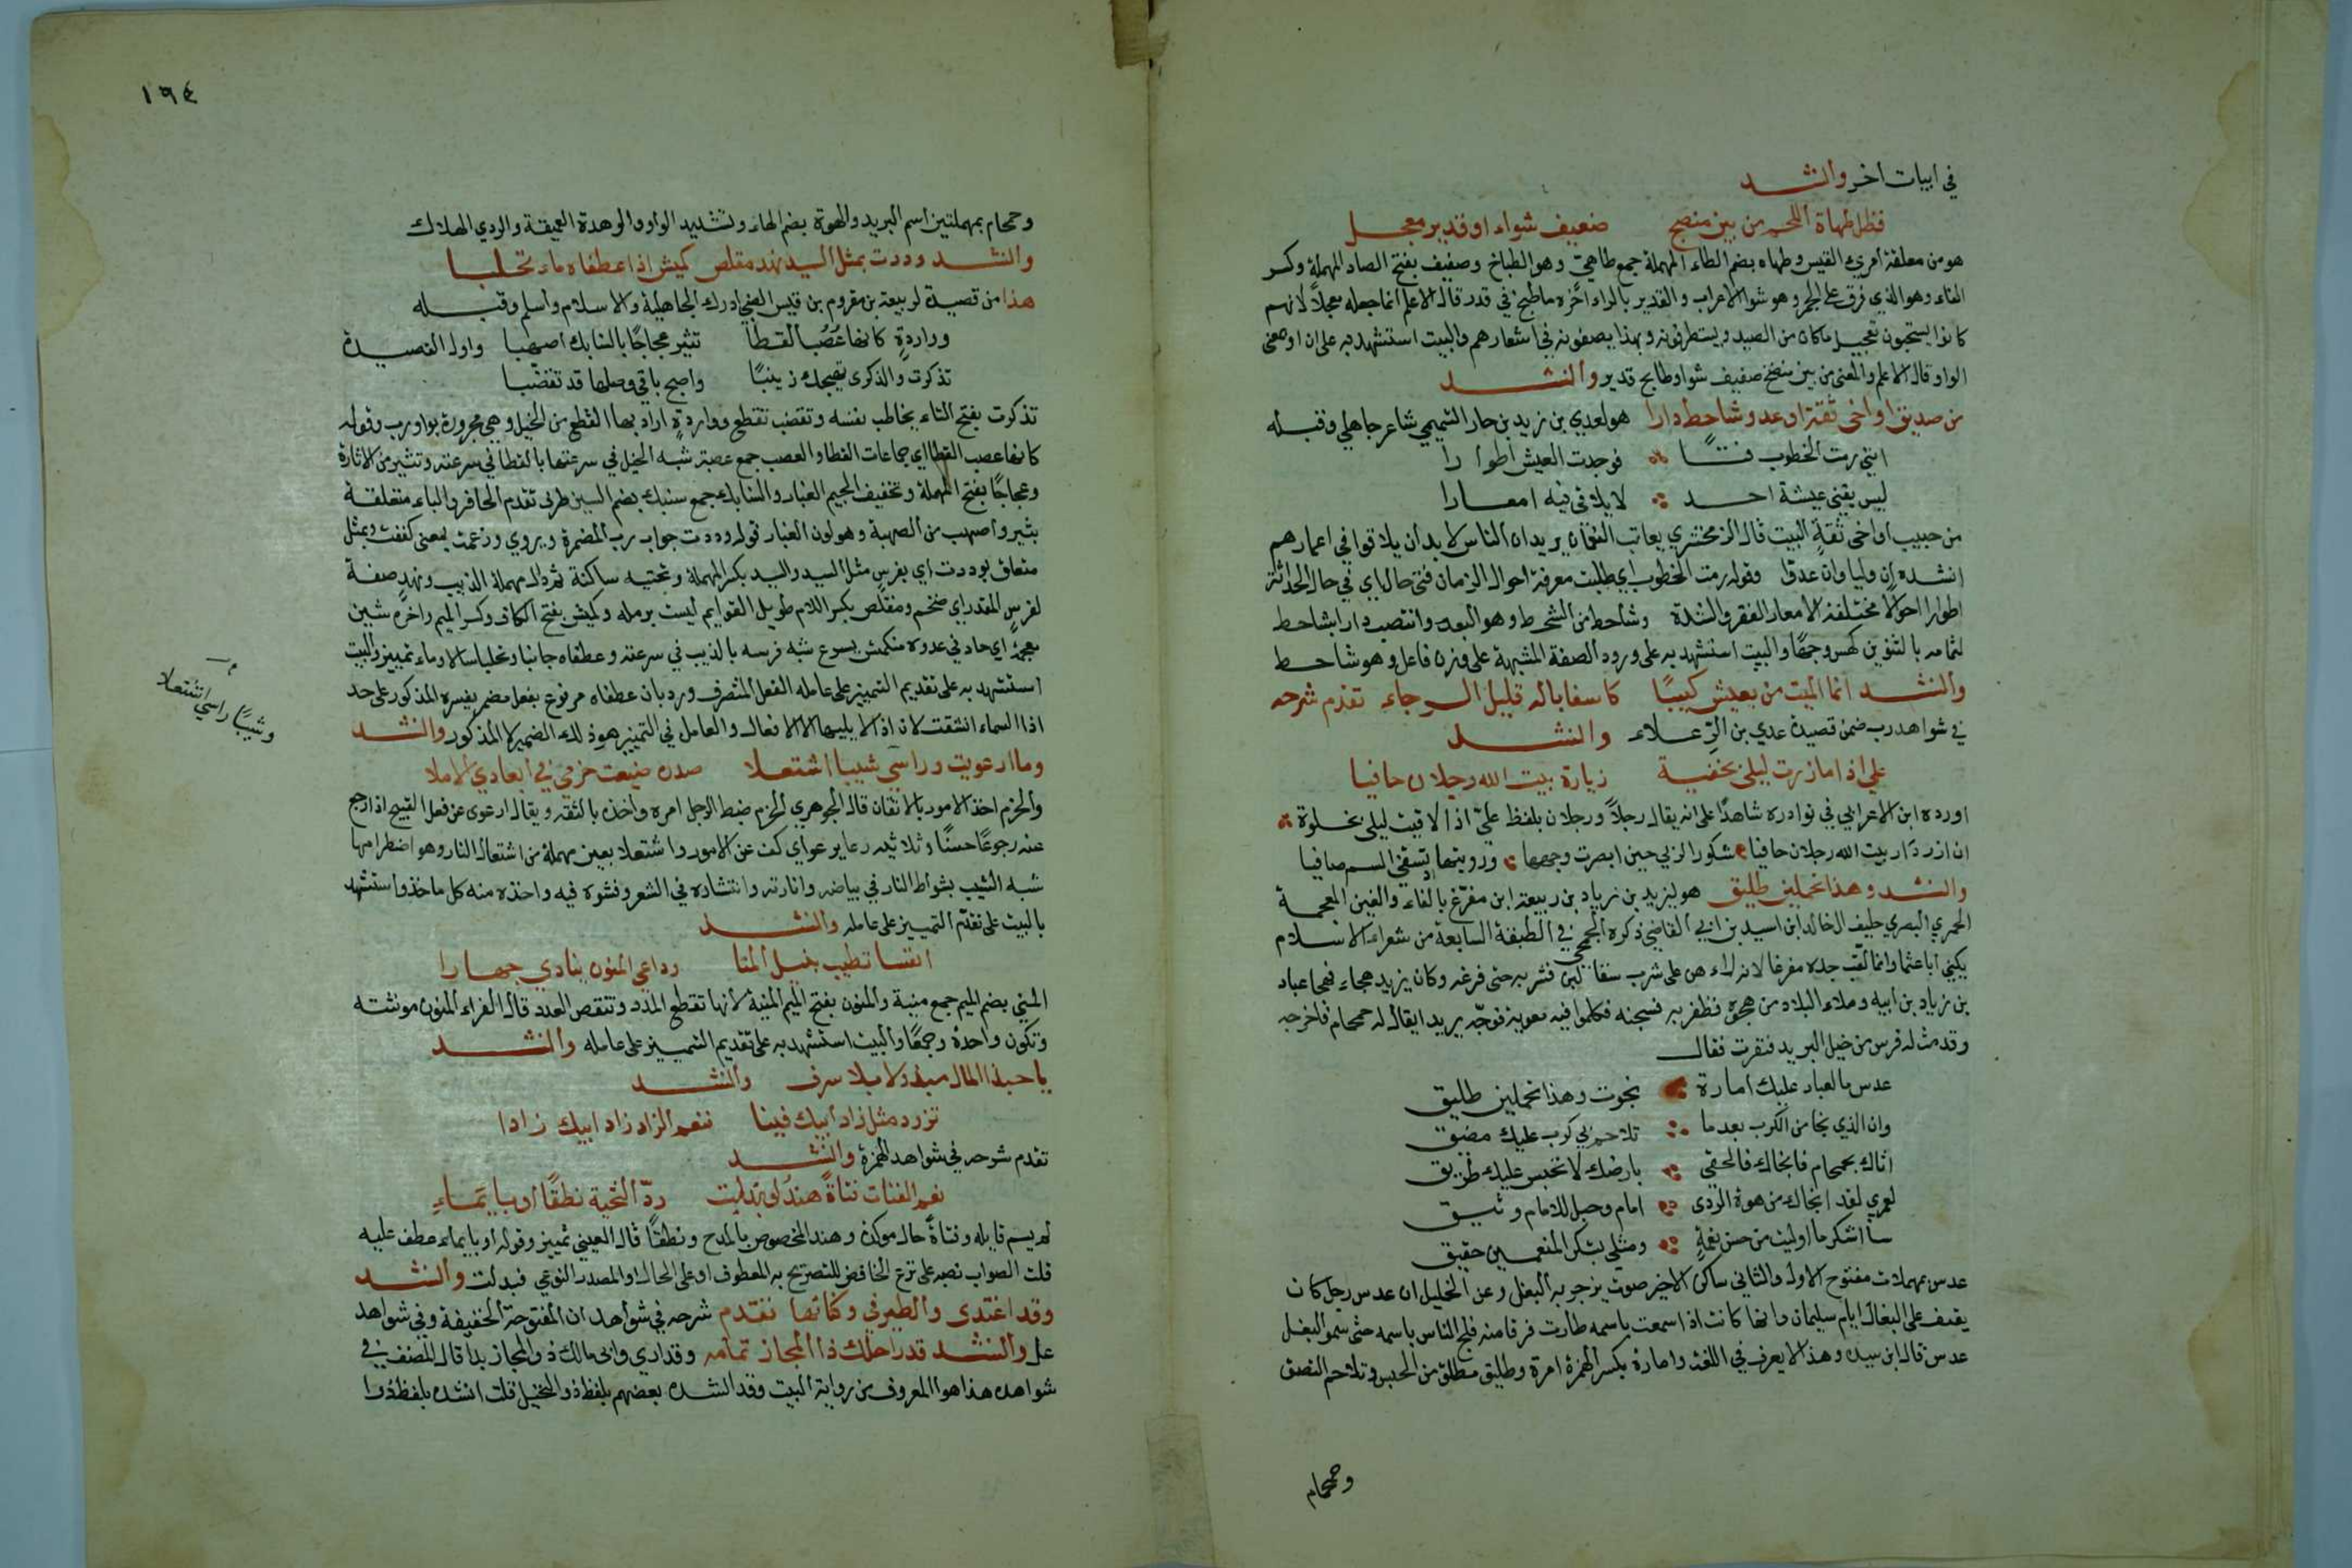 في ابيات اخر وانشد
فظل طهاة اللحم من بين منضج ضعيف شواء او قدير معجل
هو من معلقة امرئ القيس وطهاه بضم الطاء المهملة جمع طاهي وهو الطباخ وصفيف بفتح الصاد المهملة وكسر
الفاء وهو الذي فرق على الجمر وهو شواء الاعراب والقدير بالراء اخره ما طبخ في قدر قال الاعلم انما جعله معجلا لانهم
كانوا يستحبون تعجيل ما كان من الصيد ويستطرفونه وبهذا يصفونه في اشعارهم والبيت استشهد به على ان او بمعنى
الواو قال الاعلم والمعنى من بين منضج صفيف شواء وطابخ قدير وانشد
من صديق او اخي ثقة او عدو شاحط دارا هو لعدي بن زيد بن حمار التميمي شاعر جاهلي وقبله
انني رمت الخطوب فتًا فوجدت العيش اطوارا
ليس يفني عيشة احد لا يلاقي فيه امعارا
من حبيب او اخي ثقةٍ البيت قال الزمخشري يعاتب النعمان يريد ان الناس لا بد ان يلاقوا في اعمارهم
انشده ان وليا وان عدوا وقوله رمت الخطوب اي طلبت معرفة احوال الزمان فتى حال اي في حال الحداثة
اطوارا احوالا مختلفة الامعار الفقر والشدة وشاحط من الشحط وهو البعد وانتصب دارا بشاحط
لتمامه بالتنوين كحسن وجهًا والبيت استشهد به على ورود الصفة المشبهة على وزن فاعل وهو شاحط
وانشد انما الميت من يعيش كئيبًا كاسفا باله قليل الرجاء تقدم شرحه
في شواهد رب ضمن قصيدة عدي بن الرعلاء وانشد
علي اذا ما زرت ليلى بخفية زيارة بيت الله رجلان حافيا
اورده ابن الاعرابي في نوادره شاهدًا على انه يقال رجلاً ورجلان بلفظ عليّ اذا لاقيت ليلى بخلوة
ان ازدار بيت الله رجلان حافيا شكورا لربي حين ابصرت وجهها ورويتها تسقني السم صافيا
وانشد وهذا تحملين طليق هو ليزيد بن زياد بن ربيعة ابن مفرّغ بالفاء والغين المعجمة
الحميري البصري حليف ال خالد ابن اسيد بن ابي القاضي ذكره الجمحي في الطبقة السابعة من شعراء الاسلام
يكنى ابا عثمان وانما لقب جده مفرغا لانه راهن على شرب سقاء لبن فشربه حتى فرغه وكان يزيد هجاء فهجا عباد
بن زياد بن ابيه وملاء البلاد من هجوه فظفر به فسجنه فكلموا فيه معوية فوجّه بريدا يقال له حمحام فاخرجه
وقدمت له فرس من خيل البريد فنفرت فقال
عدس ما لعباد عليك امارة نجوت وهذا تحملين طليق
وان الذي نجا من الكرب بعدما تلاحم في كرب عليك مضيق
اتاك بحمحام فانجاك فالحقي بارضك لا تحبس عليك طريق
لعمري لقد انجاك من هوة الردى امام وحبل للامام وثيق
سأشكر ما اوليت من حسن نعمةٍ ومثلي بشكر المنعمين حقيق
عدس بمهملات مفتوح الاول والثاني ساكن الاخير صوت يزجر به البغل وعن الخليل ان عدس رجل كان
يعنف على البغال ايام سليمان وانها كانت اذا سمعت باسمه طارت فرقا منه فلهج الناس باسمه حتى سموا البغل
عدس قال ابن سيده وهذا لا يعرف في اللغة وامارة بكسر الهمزة امرة وطليق مطلق من الحبس وتلاحم التصق
وحمحام
١٩٤
وحمحام بمهملتين اسم البريد والهوة بضم الهاء وتشديد الواو الوهدة العميقة والردي الهلاك
وانشد وددت بمثل السيد نهد مقلص كميش اذا عطفاه ماء تحلبا
هذا من قصيدة لربيعة بن مقروم بن قيس الضبي ادرك الجاهلية والاسلام واسلم وقبله
وواردةٍ كانها عُصُب القطا تثير عجاجًا بالسنابك اصهبا واول القصيدة
تذكرت والذكرى تهيجك زينبًا واصبح باقي وصلها قد تقضّبا
تذكرت بفتح التاء يخاطب نفسه وتقضب تقطع وواردةٍ اراد بها القطع من الخيل وهي مجرورة بواو رب وقوله
كانها عصب القطا اي جماعات القطا والعصب جمع عصبة شبه الخيل في سرعتها بالقطا في سرعته وتثير من الاثارة
وعجاجًا بفتح المهملة وتخفيف الجيم الغبار والسنابك جمع سنبك بضم السين طرف مقدم الحافر والباء متعلقة
بتثير واصهب من الصهبة وهو لون الغبار قوله وددت جواب رب المضمرة ويروي وزعمت بمعنى كففت وبمثل
متعلق بوددت اي بفرس مثل السيد والسيد بكسر المهملة وتحتيه ساكنة ثم دال مهملة الذيب ونهدٍ صفة
لفرسٍ المقدر اي ضخم ومقلص بكسر اللام طويل القوايم ليست برمله وكميش بفتح الكاف وكسر الميم واخره شين
معجمة اي حاد في عدوه منكمش يسرع شبه فرسه بالذيب في سرعته وعطفاه جانبا وتحلبا سالا وماء تمييز والبيت
استشهد به على تقديم التمييز على عامله الفعل المتصرف ورد بان عطفاه مرفوع بفعل مضمر يفسره المذكور على حد
اذا السماء انشقت لان اذا لا يليها الا الافعال والعامل في التمييز هو ذلك المضمر لا المذكور وانشد
وما ارعويت وراسي شيبا اشتعلا صدره ضيعت حزمي في ابعادي الاملا
والحزم اخذ الامور بالاتقان قال الجوهري الحزم ضبط الرجل امره واخذه بالثقة ويقال ارعوى عن فعل القبيح اذا رجع
عنه رجوعًا حسنًا وثلاثيه رعا يرعو اي كف عن الامور واشتعلا بعين مهملة من اشتعال النار وهو اضطرامها
شبه الشيب بشواظ النار في بياضه وانارته وانتشاره في الشعر وفشوه فيه واخذه منه كل ماخذ واستشهد
بالبيت على تقدّم التمييز على عامله وانشد
انفسا تطيب بنيل المنا وداعي المنون ينادي جهارا
المنى بضم الميم جمع منية والمنون بفتح الميم المنية لانها تقطع المدد وتنقص العدد قال الفراء المنون مونثة
وتكون واحدة وجمعًا والبيت استشهد به على تقديم التمييز على عامله وانشد
يا حبذا المال مبذولا بلا سرف وانشد
تزود مثل زاد ابيك فينا فنعم الزاد زاد ابيك زادا
تقدم شرحه في شواهد الهمزة وانشد
نعم الفتات فتاةً هندُ لو بذلت ردّ التحية نطقًا او بايماءِ
لم يسم قايله وفتاةً حال موكدة وهند المخصوص بالمدح ونطقًا قال العيني تمييز وقوله او بايماء عطف عليه
قلت الصواب نصبه على نزع الخافض للتصريح به المعطوف او على الحال او المصدر النوعي فبدلت وانشد
وقد اغتدى والطير في وكناتها تقدم شرحه في شواهد ان المفتوحة الخفيفة وفي شواهد
عل وانشد قدر احلك ذا المجاز تمامه وقد ارى وابي مالك ذو المجاز بدا قال المصنف في
شواهده هذا هو المعروف من رواية البيت وقد انشده بعضهم بلفظ ذو النخيل قلت انشده بلفظ ذو
وشيبًا راسي اشتعلا